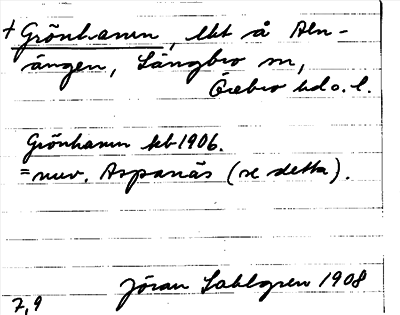 † Grönhamn, lht å Aln-
ängen, Längbro sn,
Örebro hd o. l.
Grönhamn kb 1906.
= nuv. Aspanäs (se detta).
Jöran Sahlgren 1908
7,9